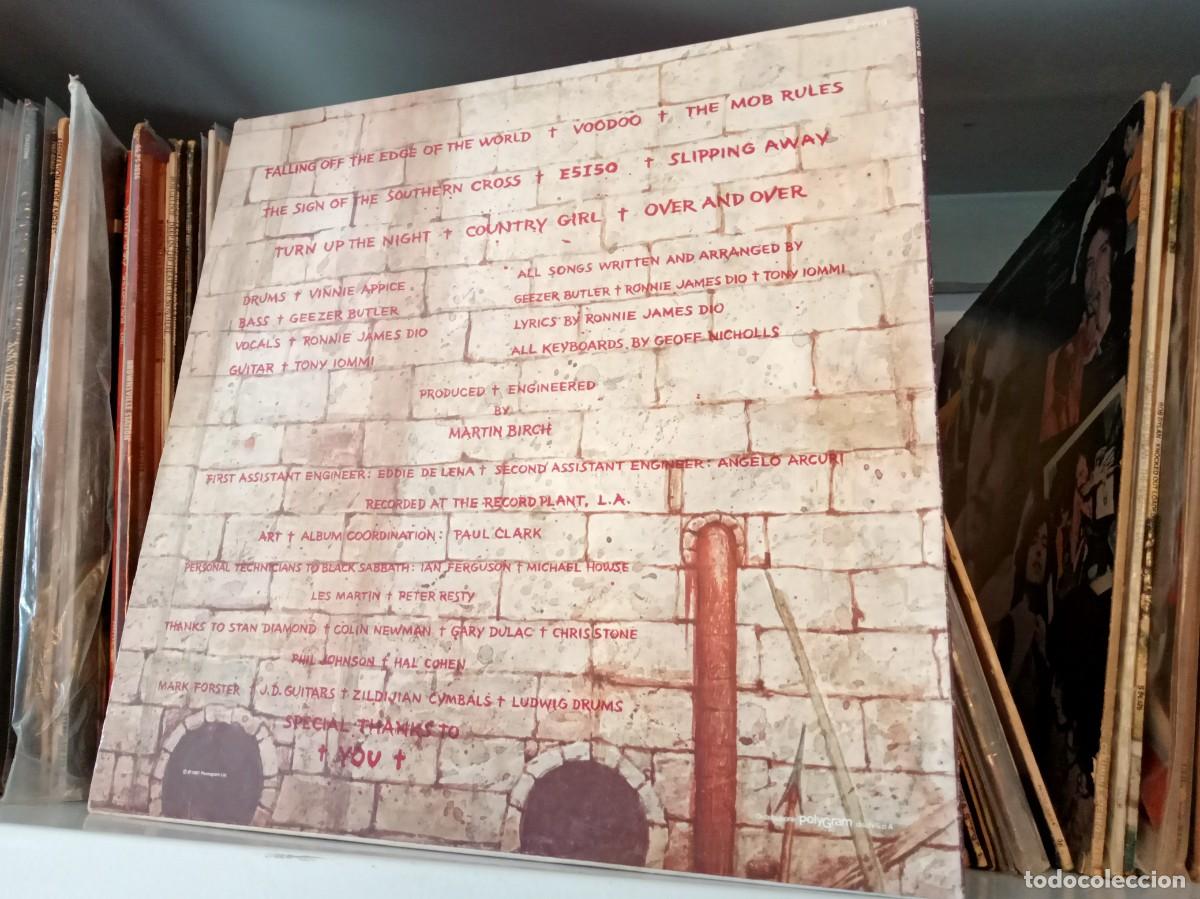 FALLING OFF THE EDGE OF THE WORLD † VOODOO † THE MOB RULES
THE SIGN OF THE SOUTHERN CROSS † E5150 † SLIPPING AWAY
TURN UP THE NIGHT † COUNTRY GIRL † OVER AND OVER
DRUMS † VINNIE APPICE
BASS † GEEZER BUTLER
VOCALS † RONNIE JAMES DIO
GUITAR † TONY IOMMI
ALL SONGS WRITTEN AND ARRANGED BY
GEEZER BUTLER † RONNIE JAMES DIO † TONY IOMMI
LYRICS BY RONNIE JAMES DIO
ALL KEYBOARDS BY GEOFF NICHOLLS
PRODUCED † ENGINEERED
BY
MARTIN BIRCH
FIRST ASSISTANT ENGINEER: EDDIE DE LENA † SECOND ASSISTANT ENGINEER: ANGELO ARCURI
RECORDED AT THE RECORD PLANT, L.A.
ART † ALBUM COORDINATION: PAUL CLARK
PERSONAL TECHNICIANS TO BLACK SABBATH: IAN FERGUSON † MICHAEL HOWSE
LES MARTIN † PETER RESTY
THANKS TO STAN DIAMOND † COLIN NEWMAN † GARY DULAC † CHRIS STONE
PHIL JOHNSON † HAL COHEN
MARK FORSTER † J.D. GUITARS † ZILDIJIAN CYMBALS † LUDWIG DRUMS
SPECIAL THANKS TO
† YOU †
polyGram
todocoleccion